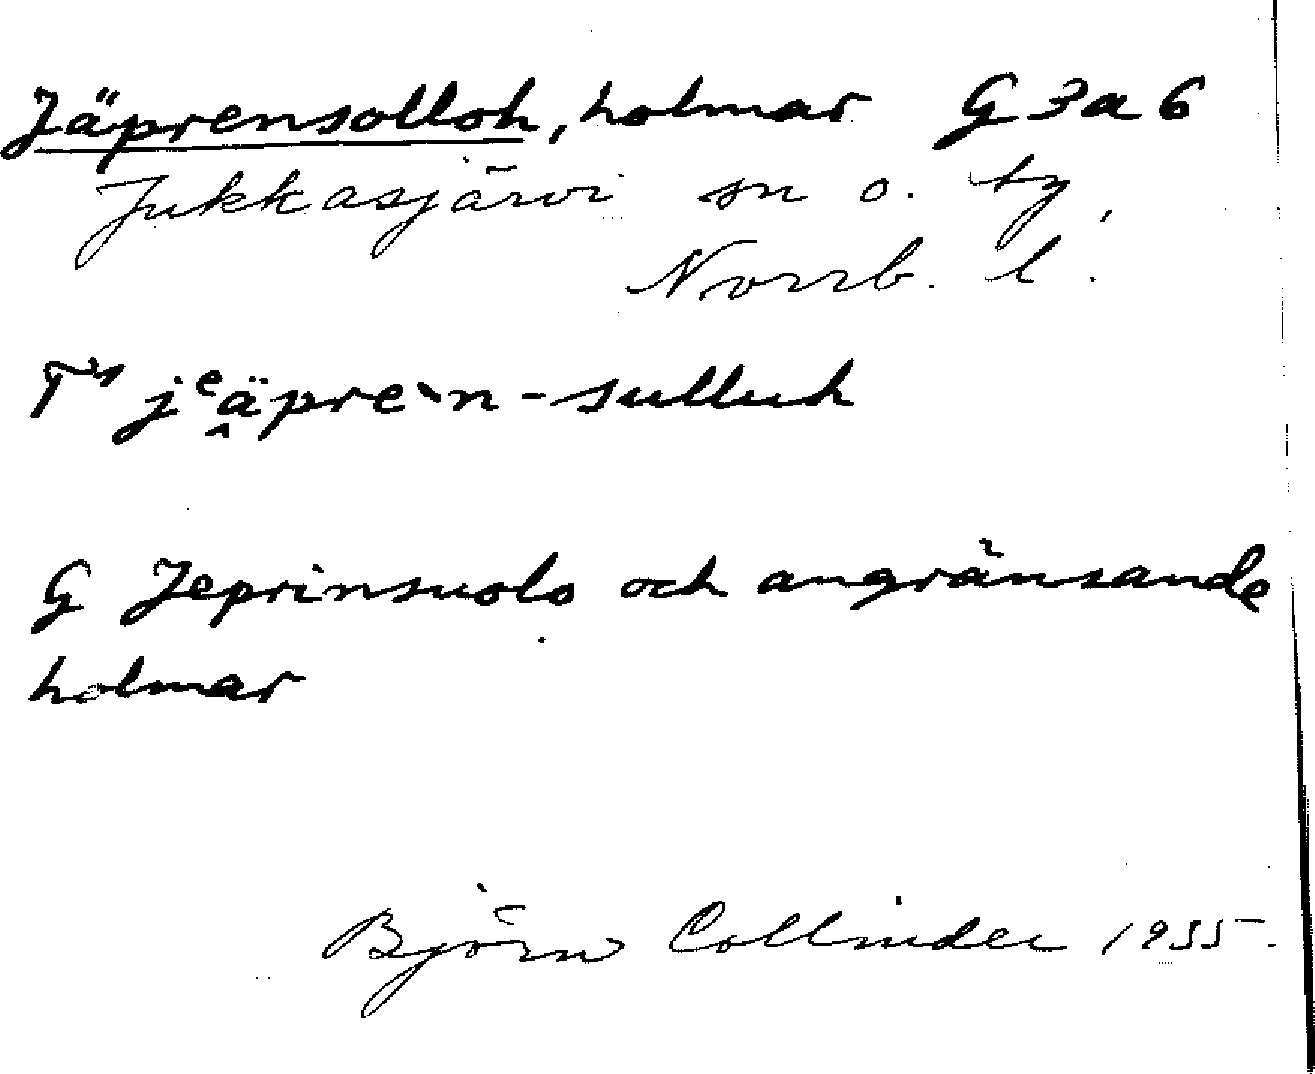 Jäprensolloh, holmar G 3 a 6
Jukkasjärvi sn o. tg,
Norrb. l.
jᵉäpre`n-sulluh
G Jeprinsuolo och angränsande
holmar
Björn Collinder 1955.